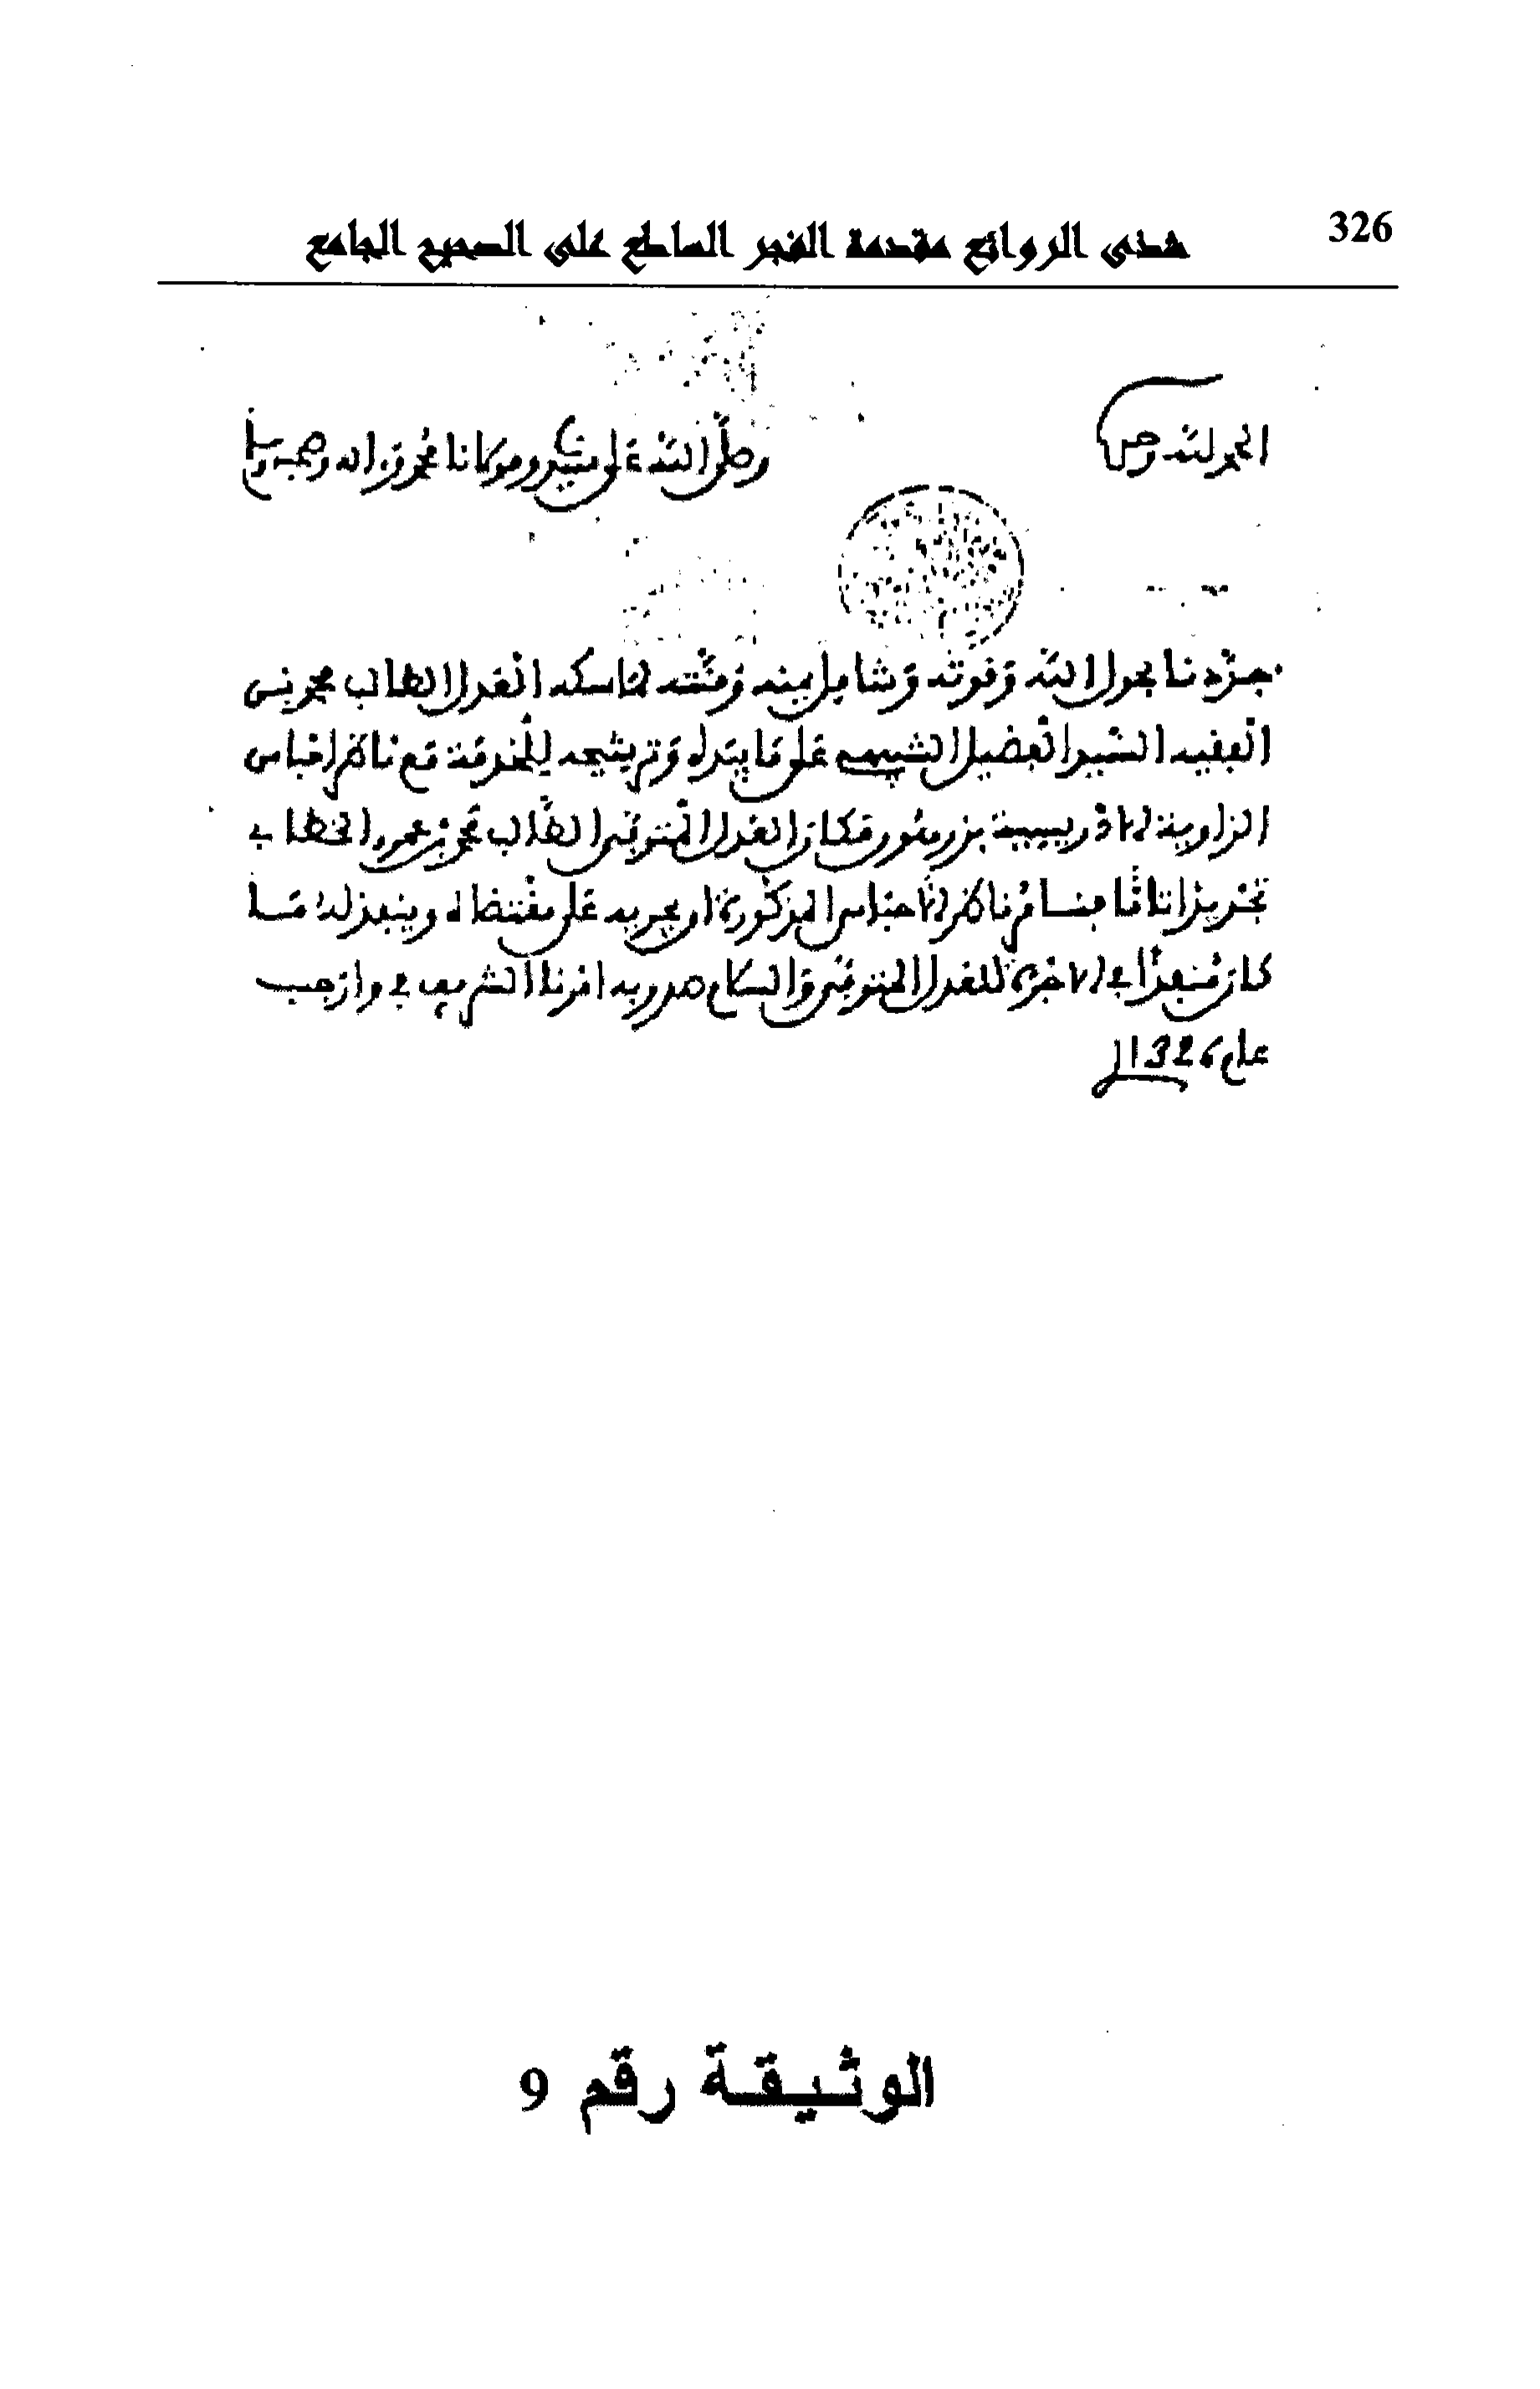 326
شذى الروائع مقدمة الفجر الساطع على الصحيح الجامع
الحمد لله وحده
وصلى الله على سيدنا ومولانا محمد وءاله وصحبه وسلم
جددنا بحول الله وقوته وشامل يمنه ومنته لماسكه العدل الطالب محمد بن
الفقيه السيد الفضيل الشبيهي على ما بيده وترشيحه للخدمة مع ناظر احباس
الزاوية الادريسية بزرهون مكان العدل المتوفى الطالب محمد بن عمرو الخطابي
تجديدا تاما فنامر ناظر الاحباس المذكورة ان يجريه على مقتضاه وينفذ له ما
كان منفذا في الاجرة للعدل المتوفى والسلام صدر به امرنا الشريف في رجب
عام 1326
الوثيقة رقم 9